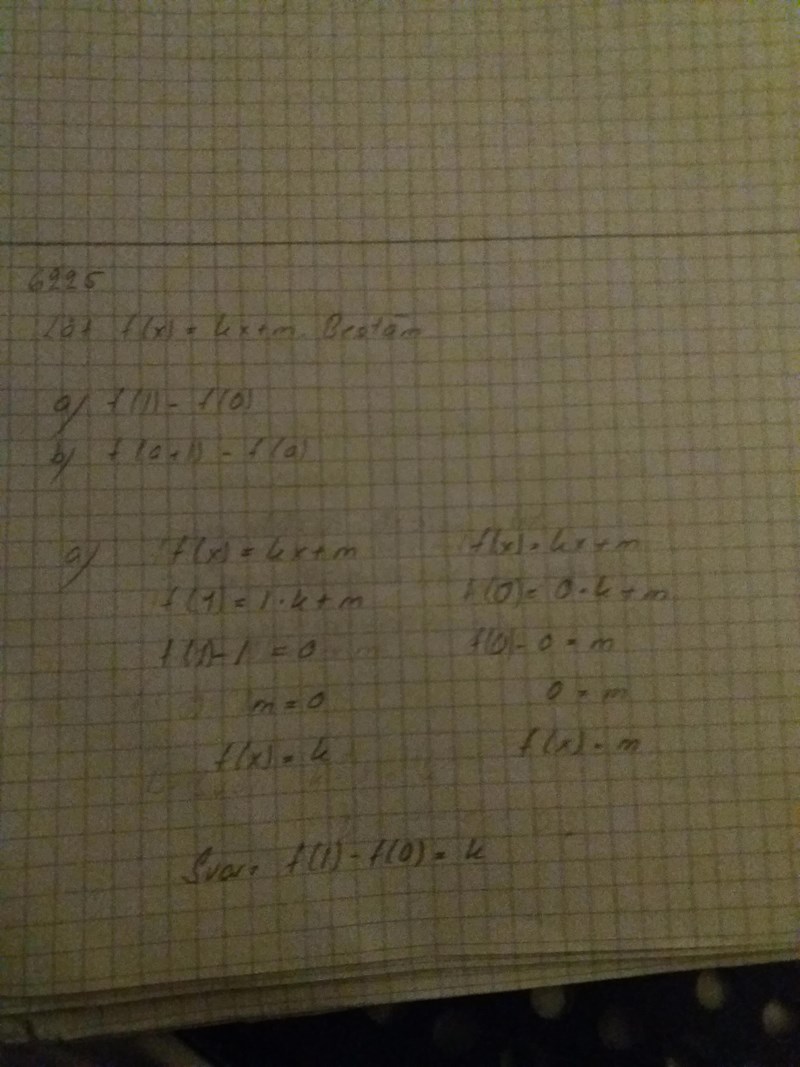 6225
Låt f(x) = kx+m. Bestäm
a) f(1) - f(0)
b) f(a+1) - f(a)
a) f(x) = kx+m
f(1) = 1·k+m
f(1)-1 = 0
m = 0
f(x) = k
f(x) = kx+m
f(0) = 0·k+m
f(0)- 0 = m
0 = m
f(x) = m
Svar: f(1) - f(0) = k